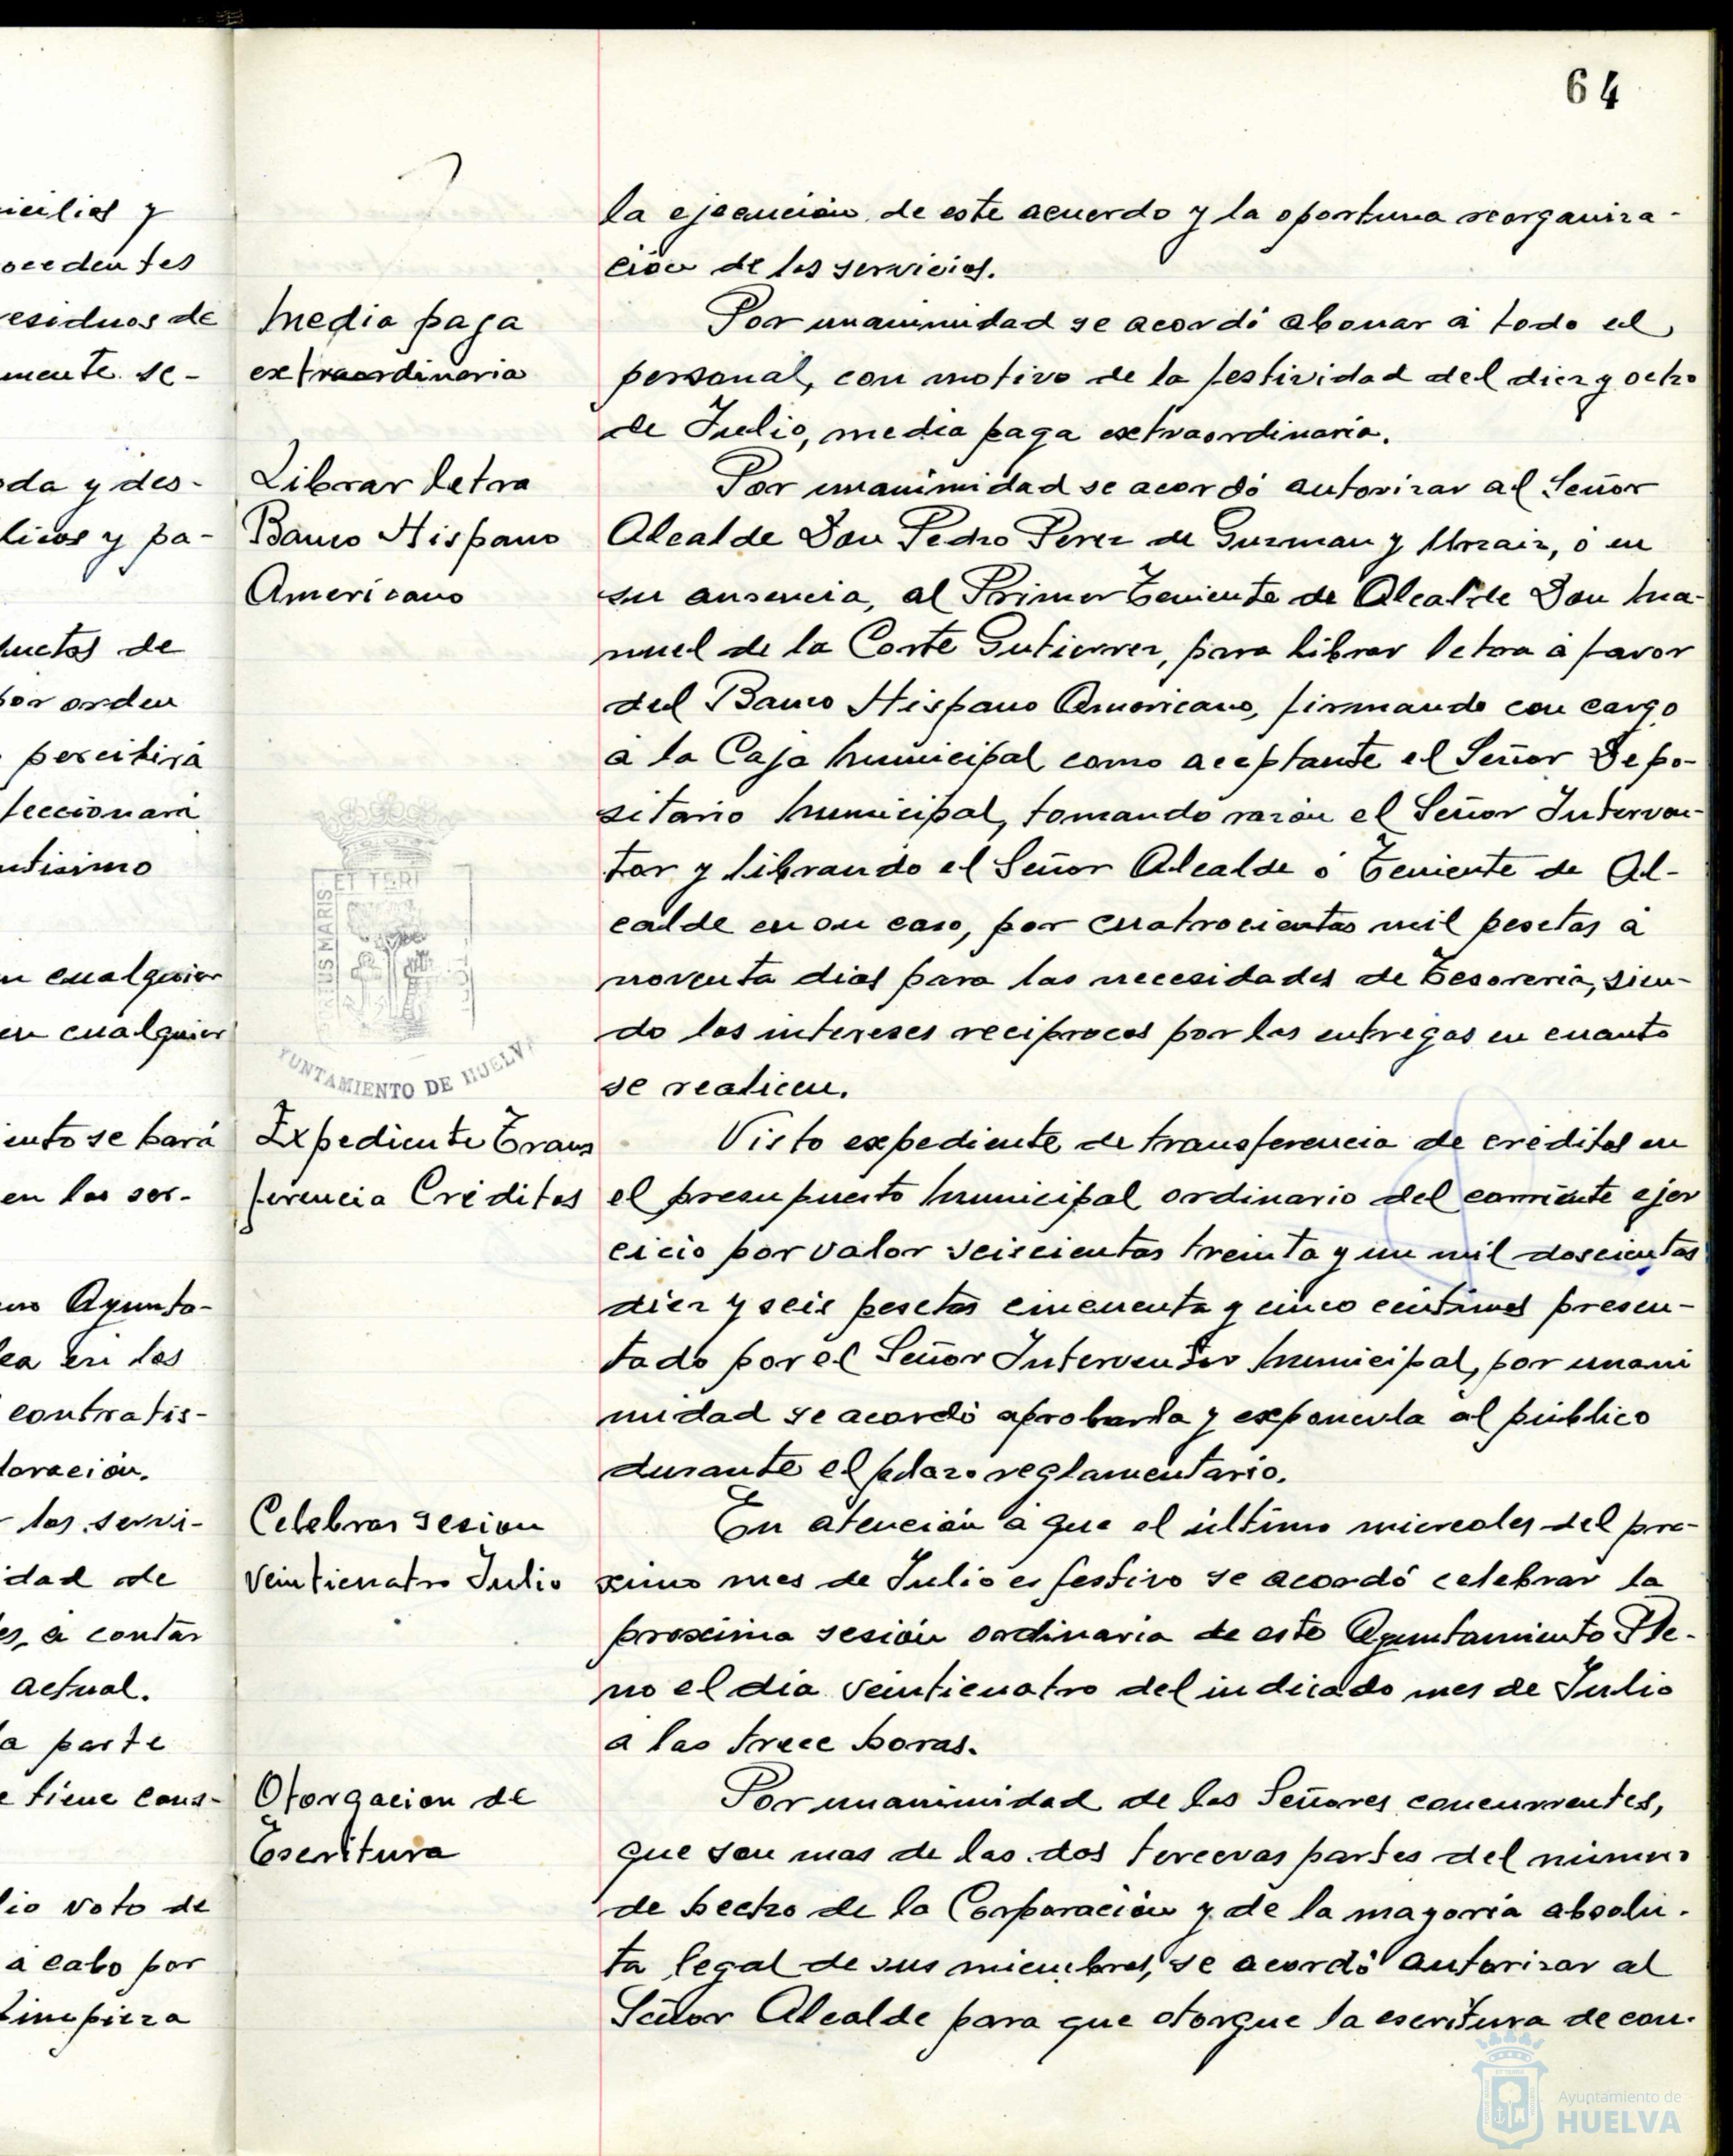 64
icilios y
ocedentes
residuos de
mente se-
oda y des-
licos y pa-
ductos de
por orden
percibirá
feccionará
ntísimo
n cualquier
en cualquier
iento se hará
en los ser-
mo Ayunta-
lea en los
contratis-
loración.
los servi-
idad de
es, á contar
actual.
a parte
e tiene cons-
lio voto de
á cabo por
limpieza
la ejecución de este acuerdo y la oportuna reorganiza-
ción de los servicios.
Media paga
extraordinaria
Por unanimidad se acordó abonar á todo el
personal, con motivo de la festividad del diez y ocho
de Julio, media paga extraordinaria.
Librar letra
Banco Hispano
Americano
Por unanimidad se acordó autorizar al Señor
Alcalde Don Pedro Perez de Guzman y Urzaiz, ó en
su ausencia, al Primer Teniente de Alcalde Don Ma-
nuel de la Corte Gutierrez, para librar letra á favor
del Banco Hispano Americano, firmando con cargo
á la Caja Municipal como aceptante el Señor Depo-
sitario Municipal, tomando razón el Señor Interven-
tor y librando el Señor Alcalde ó Teniente de Al-
calde en su caso, por cuatrocientas mil pesetas á
noventa dias para las necesidades de Tesorería, sien-
do los intereses reciprocos por las entregas en cuanto
se realicen.
ET TERI
US MARIS
YUNTAMIENTO DE HUELVA
Expediente Trans
ferencia Créditos
Visto expediente de transferencia de créditos en
el presupuesto Municipal ordinario del corriente ejer
cicio por valor seiscientas treinta y un mil doscientas
diez y seis pesetas cincuenta y cinco centimos presen-
tado por el Señor Interventor Municipal, por unani
midad se acordó aprobarla y exponerla al público
durante el plazo reglamentario.
Celebrar sesion
veinticuatro Julio
En atención á que el último miercoles del pro-
ximo mes de Julio es festivo se acordó celebrar la
proxima sesión ordinaria de este Ayuntamiento Ple-
no el dia veinticuatro del indicado mes de Julio
a las trece horas.
Otorgacion de
Escritura
Por unanimidad de los Señores concurrentes,
que son mas de las dos terceras partes del número
de hecho de la Corporación y de la mayoría absolu-
ta legal de sus miembros, se acordó autorizar al
Señor Alcalde para que otorgue la escritura de con-
Ayuntamiento de
HUELVA